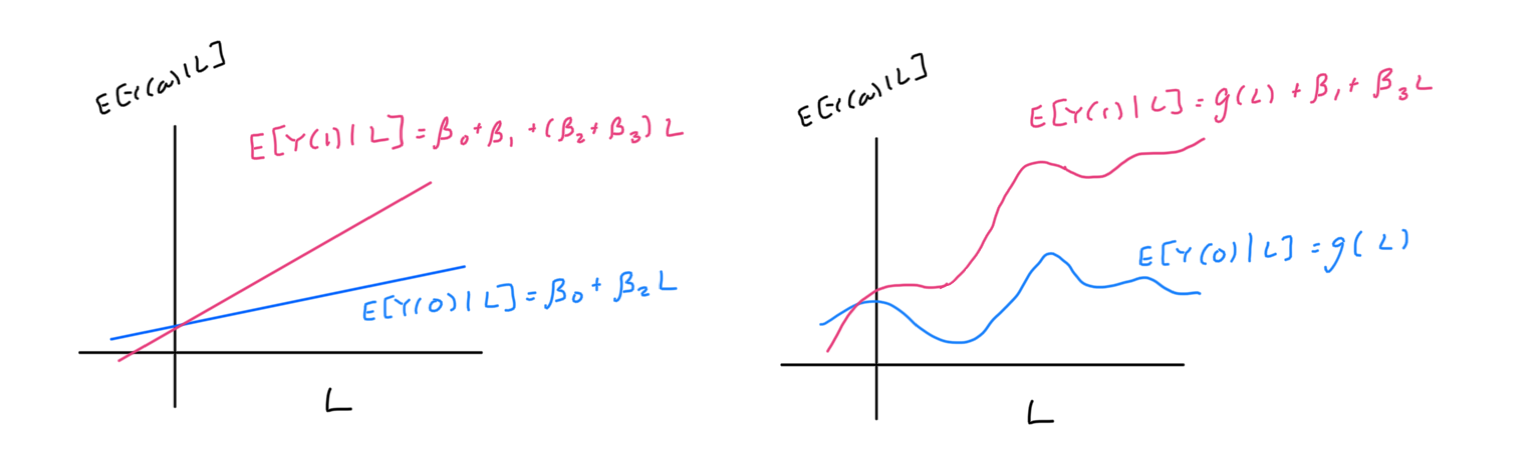 E[Y(a)|L]
E[Y(1)|L] = β₀ + β₁ + (β₂ + β₃) L
E[Y(0)|L] = β₀ + β₂ L
L
E[Y(a)|L]
E[Y(1)|L] = g(L) + β₁ + β₃ L
E[Y(0)|L] = g(L)
L